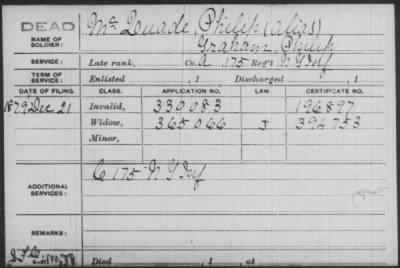 DEAD
NAME OF SOLDIER:
Mc Quade, Philip (alias)
Graham, Philip
SERVICE:
Late rank, Co. A 175 Reg't N Y Inf
TERM OF SERVICE:
Enlisted , 1 Discharged , 1
DATE OF FILING. CLASS. APPLICATION NO. LAW. CERTIFICATE NO.
1879 Dec 21 Invalid, 330083 196897
Widow, 365066 J 394753
Minor,
ADDITIONAL SERVICES:
C 175 N Y Inf
REMARKS:
Died , 1 , at